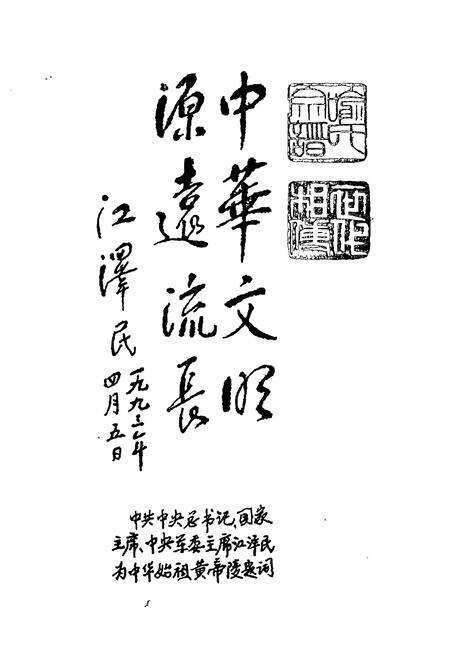 喻氏
宗譜
世代
相傳
中華文明
源遠流長
江澤民
一九九三年
四月五日
中共中央总书记、国家
主席、中央军委主席江泽民
为中华始祖黄帝陵题词
1